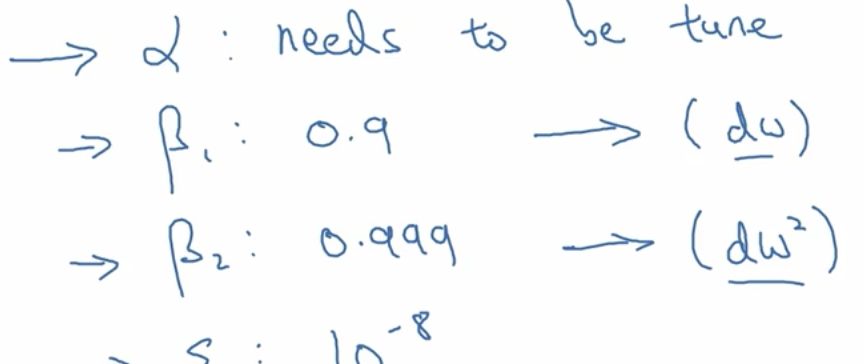 → α : needs to be tune
→ β₁ : 0.9 → (dw)
→ β₂ : 0.999 → (dw²)
: 10⁻⁸